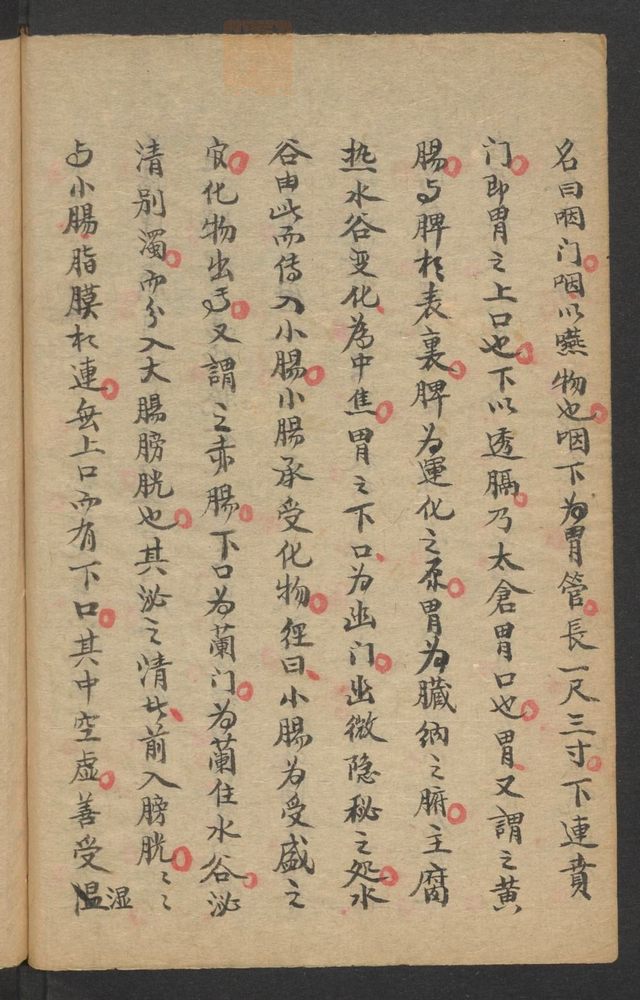 名曰咽门咽以嚥物也咽下为胃管長一尺三寸下連賁
门即胃之上口也下以透膈乃太倉胃口也胃又謂之黄
腸与脾相表裏脾为運化之原胃为臟納之腑主腐
热水谷变化為中焦胃之下口为幽门幽微隐秘之処水
谷由此而传入小腸小腸承受化物經曰小腸为受盛之
官化物出焉又謂之赤腸下口为蘭门为蘭住水谷泌
清别濁而分入大腸膀胱也其泌之情廾前入膀胱〻〻
与小腸脂膜相連無上口而有下口其中空虛善受湿